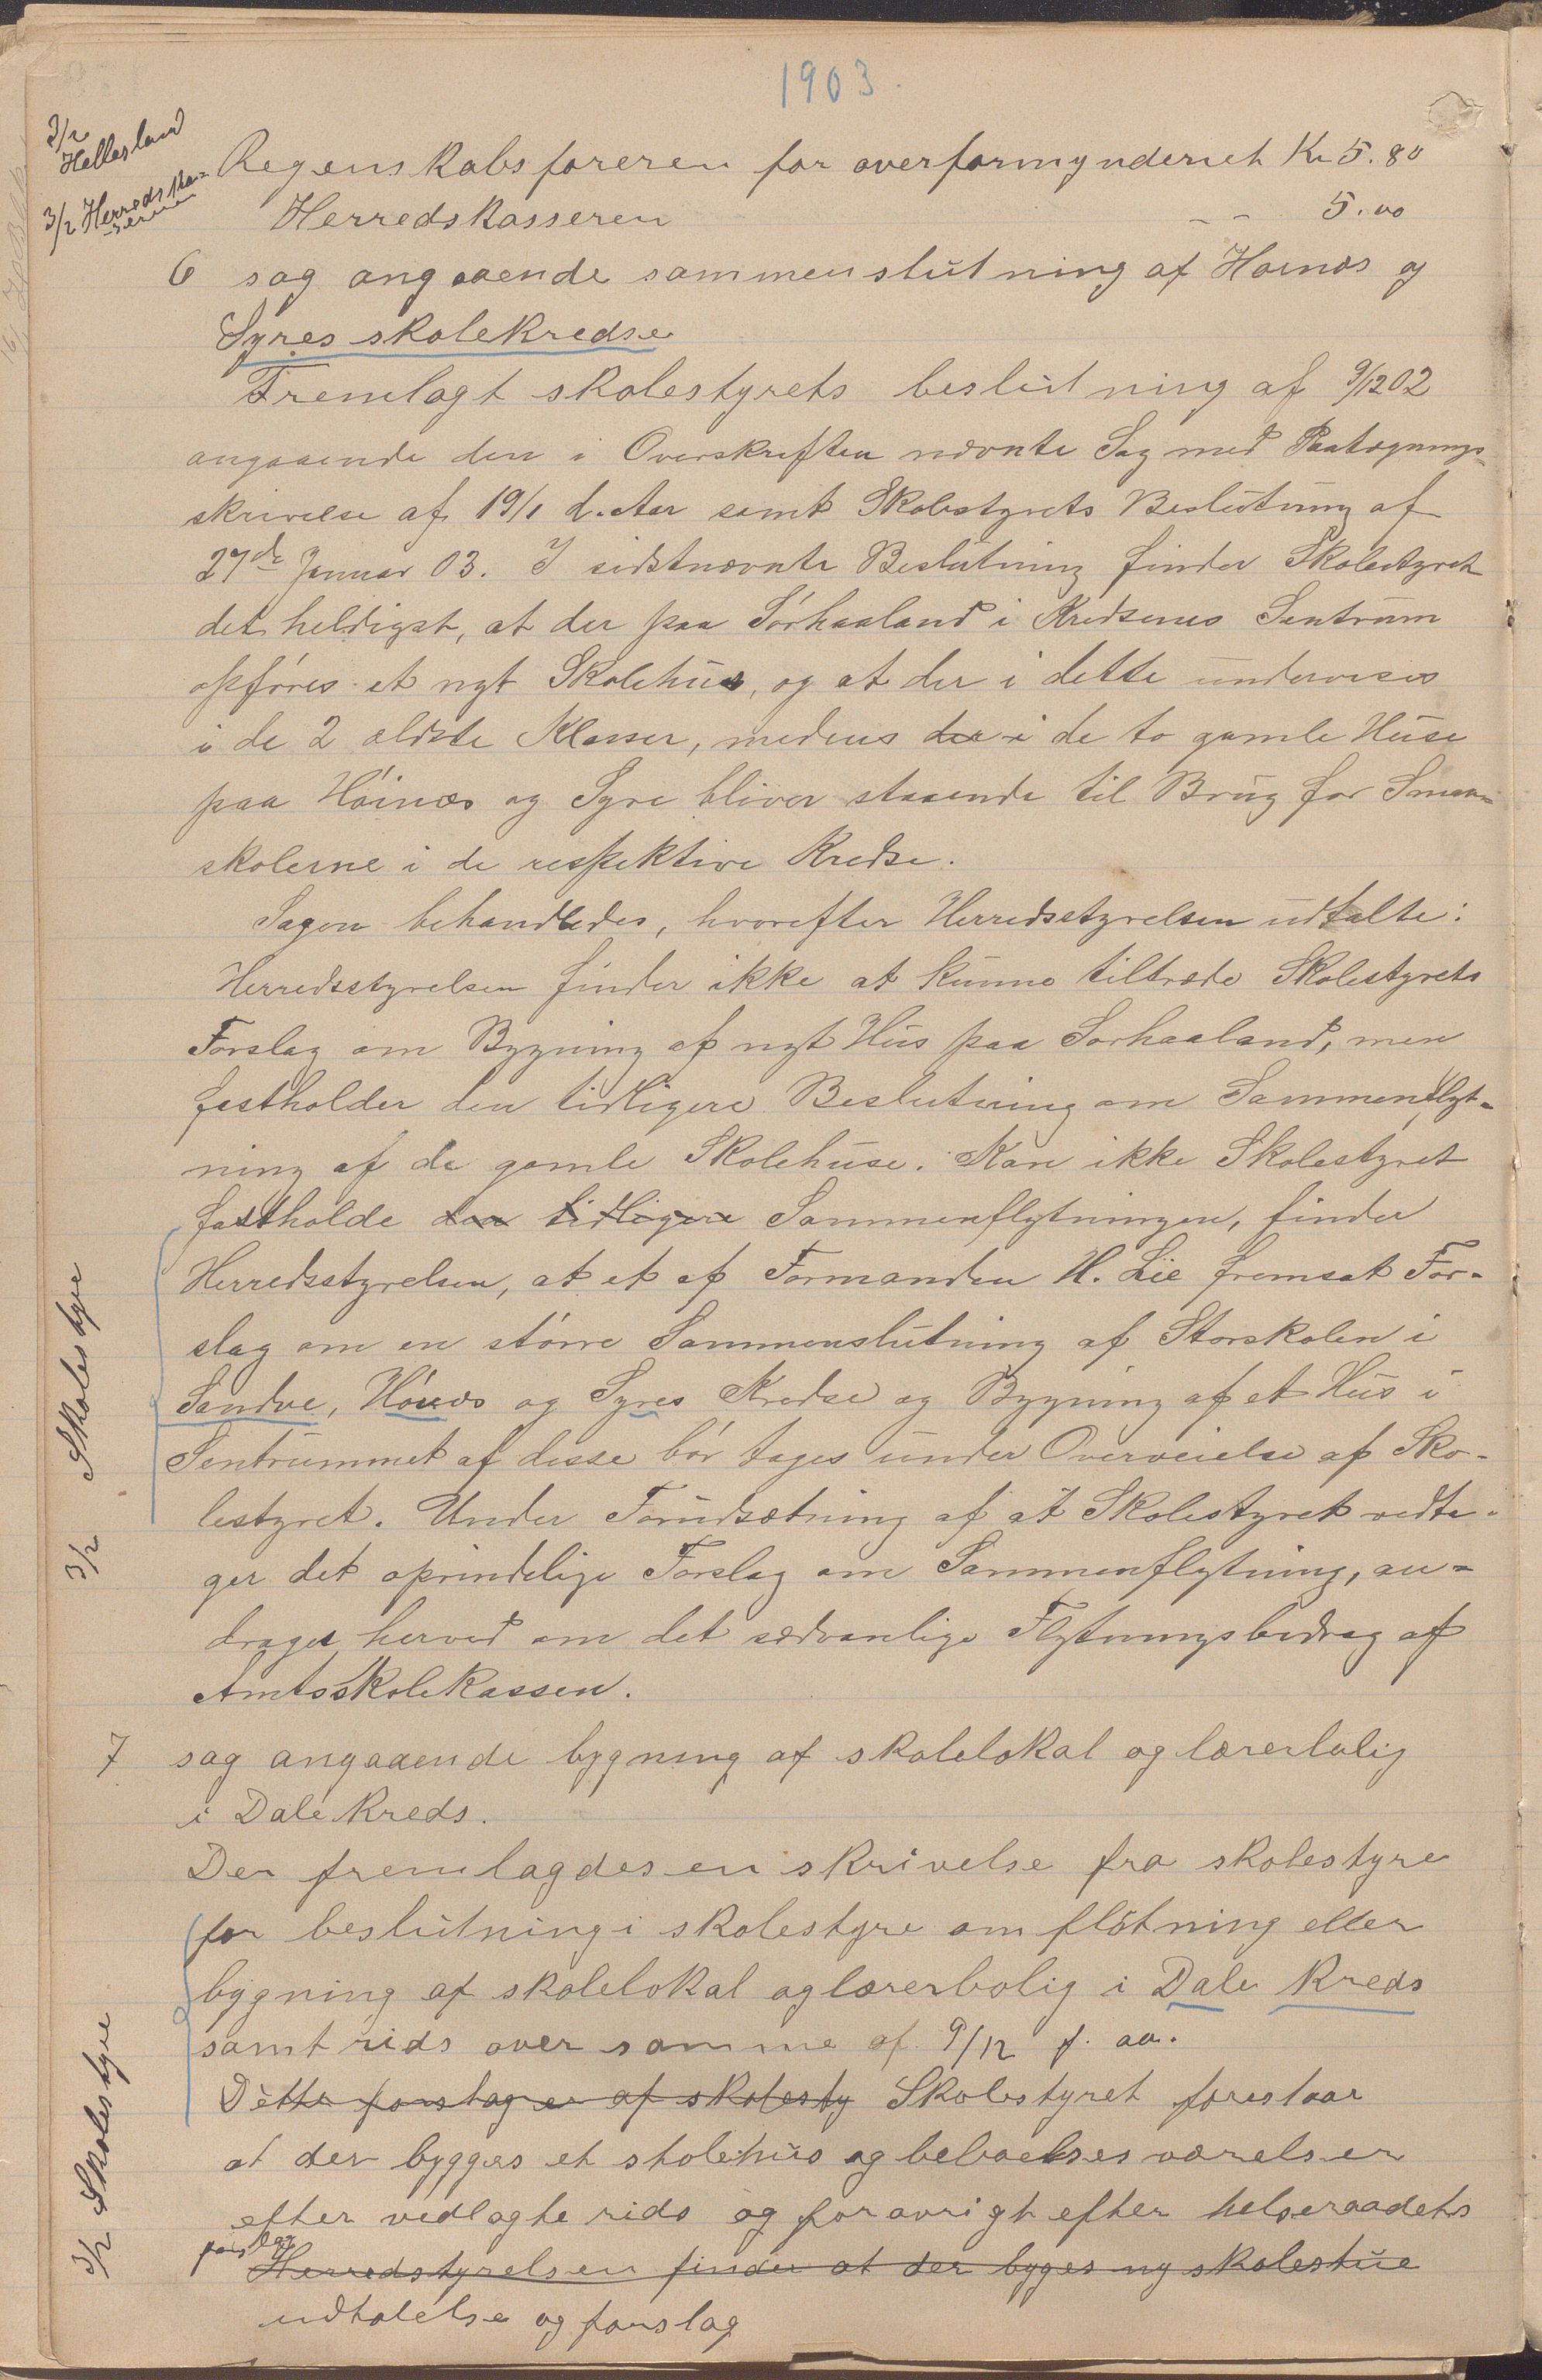 1903.
3/2 Hellesland
3/2 Herredskas-
seren
Regenskabsføreren for overformynderiet Kr 5.80
Herredskasseren - - 5.00
6 sag angaaende sammenslutning af Høinæs og
Syres skolekredse
Fremlagt skolestyrets beslutning af 9/12 02
angaaende den i Overskriften nævnte Sag med Paategnings-
skrivelse af 19/1 d. Aar samt Skolestyrets Beslutning af
27de Januar 03. I sidstnævnte Beslutning finder Skolestyret
det heldigst, at der paa Sørhaaland i Kredsenes Sentrum
opføres et nyt Skolehus, og at der i dette undervises
i de 2 ældste Klasser, medens der i de to gamle Huse
paa Høinæs og Syre bliver staaende til Brug for Smaa-
skolerne i de respektive Kredse.
Sagen behandledes, hvorefter Herredsstyrelsen udtalte:
Herredsstyrelsen finder ikke at kunne tiltræde Skolestyrets
Forslag om Bygning af nyt Hus paa Sørhaaland, men
fastholder den tidligere Beslutning om Sammenflyt-
ning af de gamle Skolehuse. Kan ikke Skolestyret
fastholde den tidligere Sammenflytningen, finder
Herredsstyrelsen, at et af Formanden H. Lie fremsat For-
slag om en større Sammenslutning af Storskolen i
Sandve, Høinæs og Syres Kredse og Bygning af et Hus i
Sentrummet af disse bør tages under Overveielse af Sko-
lestyret. Under Forudsætning af at Skolestyret vedta-
ger det oprindelige Forslag om Sammenflytning, an-
drages herved om det sædvanlige Flytningsbidrag af
Amtsskolekassen.
3/2 Skolestyre
7 sag angaaende bygning af skolelokal og lærerbolig
i Dale Kreds.
Der fremlagdes en skrivelse fra skolestyre
for beslutning i skolestyre om fløtning eller
bygning af skolelokal og lærerbolig i Dale Kreds
samt rids over samme af 9/12 f. aa.
Dette forslag er af skolesty Skolestyret foreslaar
at der bygges et skolehus og beboelsesværelser
efter vedlagte rids og forøvrigt efter helseraadets
forslag
Herredstyrelsen finder at der byges ny skolestue
udtalelse og forslag
3/2 Skolestyre